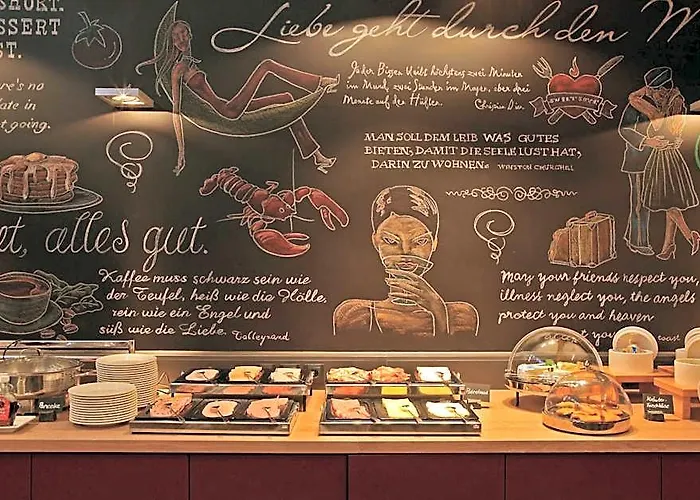 SHORT.
DESSERT
ST.
ere's no
ate in
t going.
Liebe geht durch den M
Jeder Bissen bleibt höchstens zwei Minuten
im Mund, zwei Stunden im Magen, aber drei
Monate auf den Hüften. Christian Dior
MAN SOLL DEM LEIB WAS GUTES
BIETEN, DAMIT DIE SEELE LUST HAT,
DARIN ZU WOHNEN. WINSTON CHURCHILL
SWEET SOUL
et, alles gut.
Kaffee muss schwarz sein wie
der Teufel, heiß wie die Hölle,
rein wie ein Engel und
süß wie die Liebe. Talleyrand
May your friends respect you,
illness neglect you, the angels
protect you and heaven
t you. toast